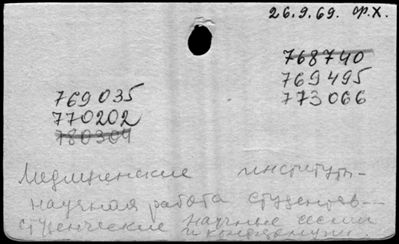 26.9.69. ор.Х.
768740
769495
773066
769035
770202
780304
Медицинские институты-
научная работа студентов--
студенческие научные сессии
и конференции.